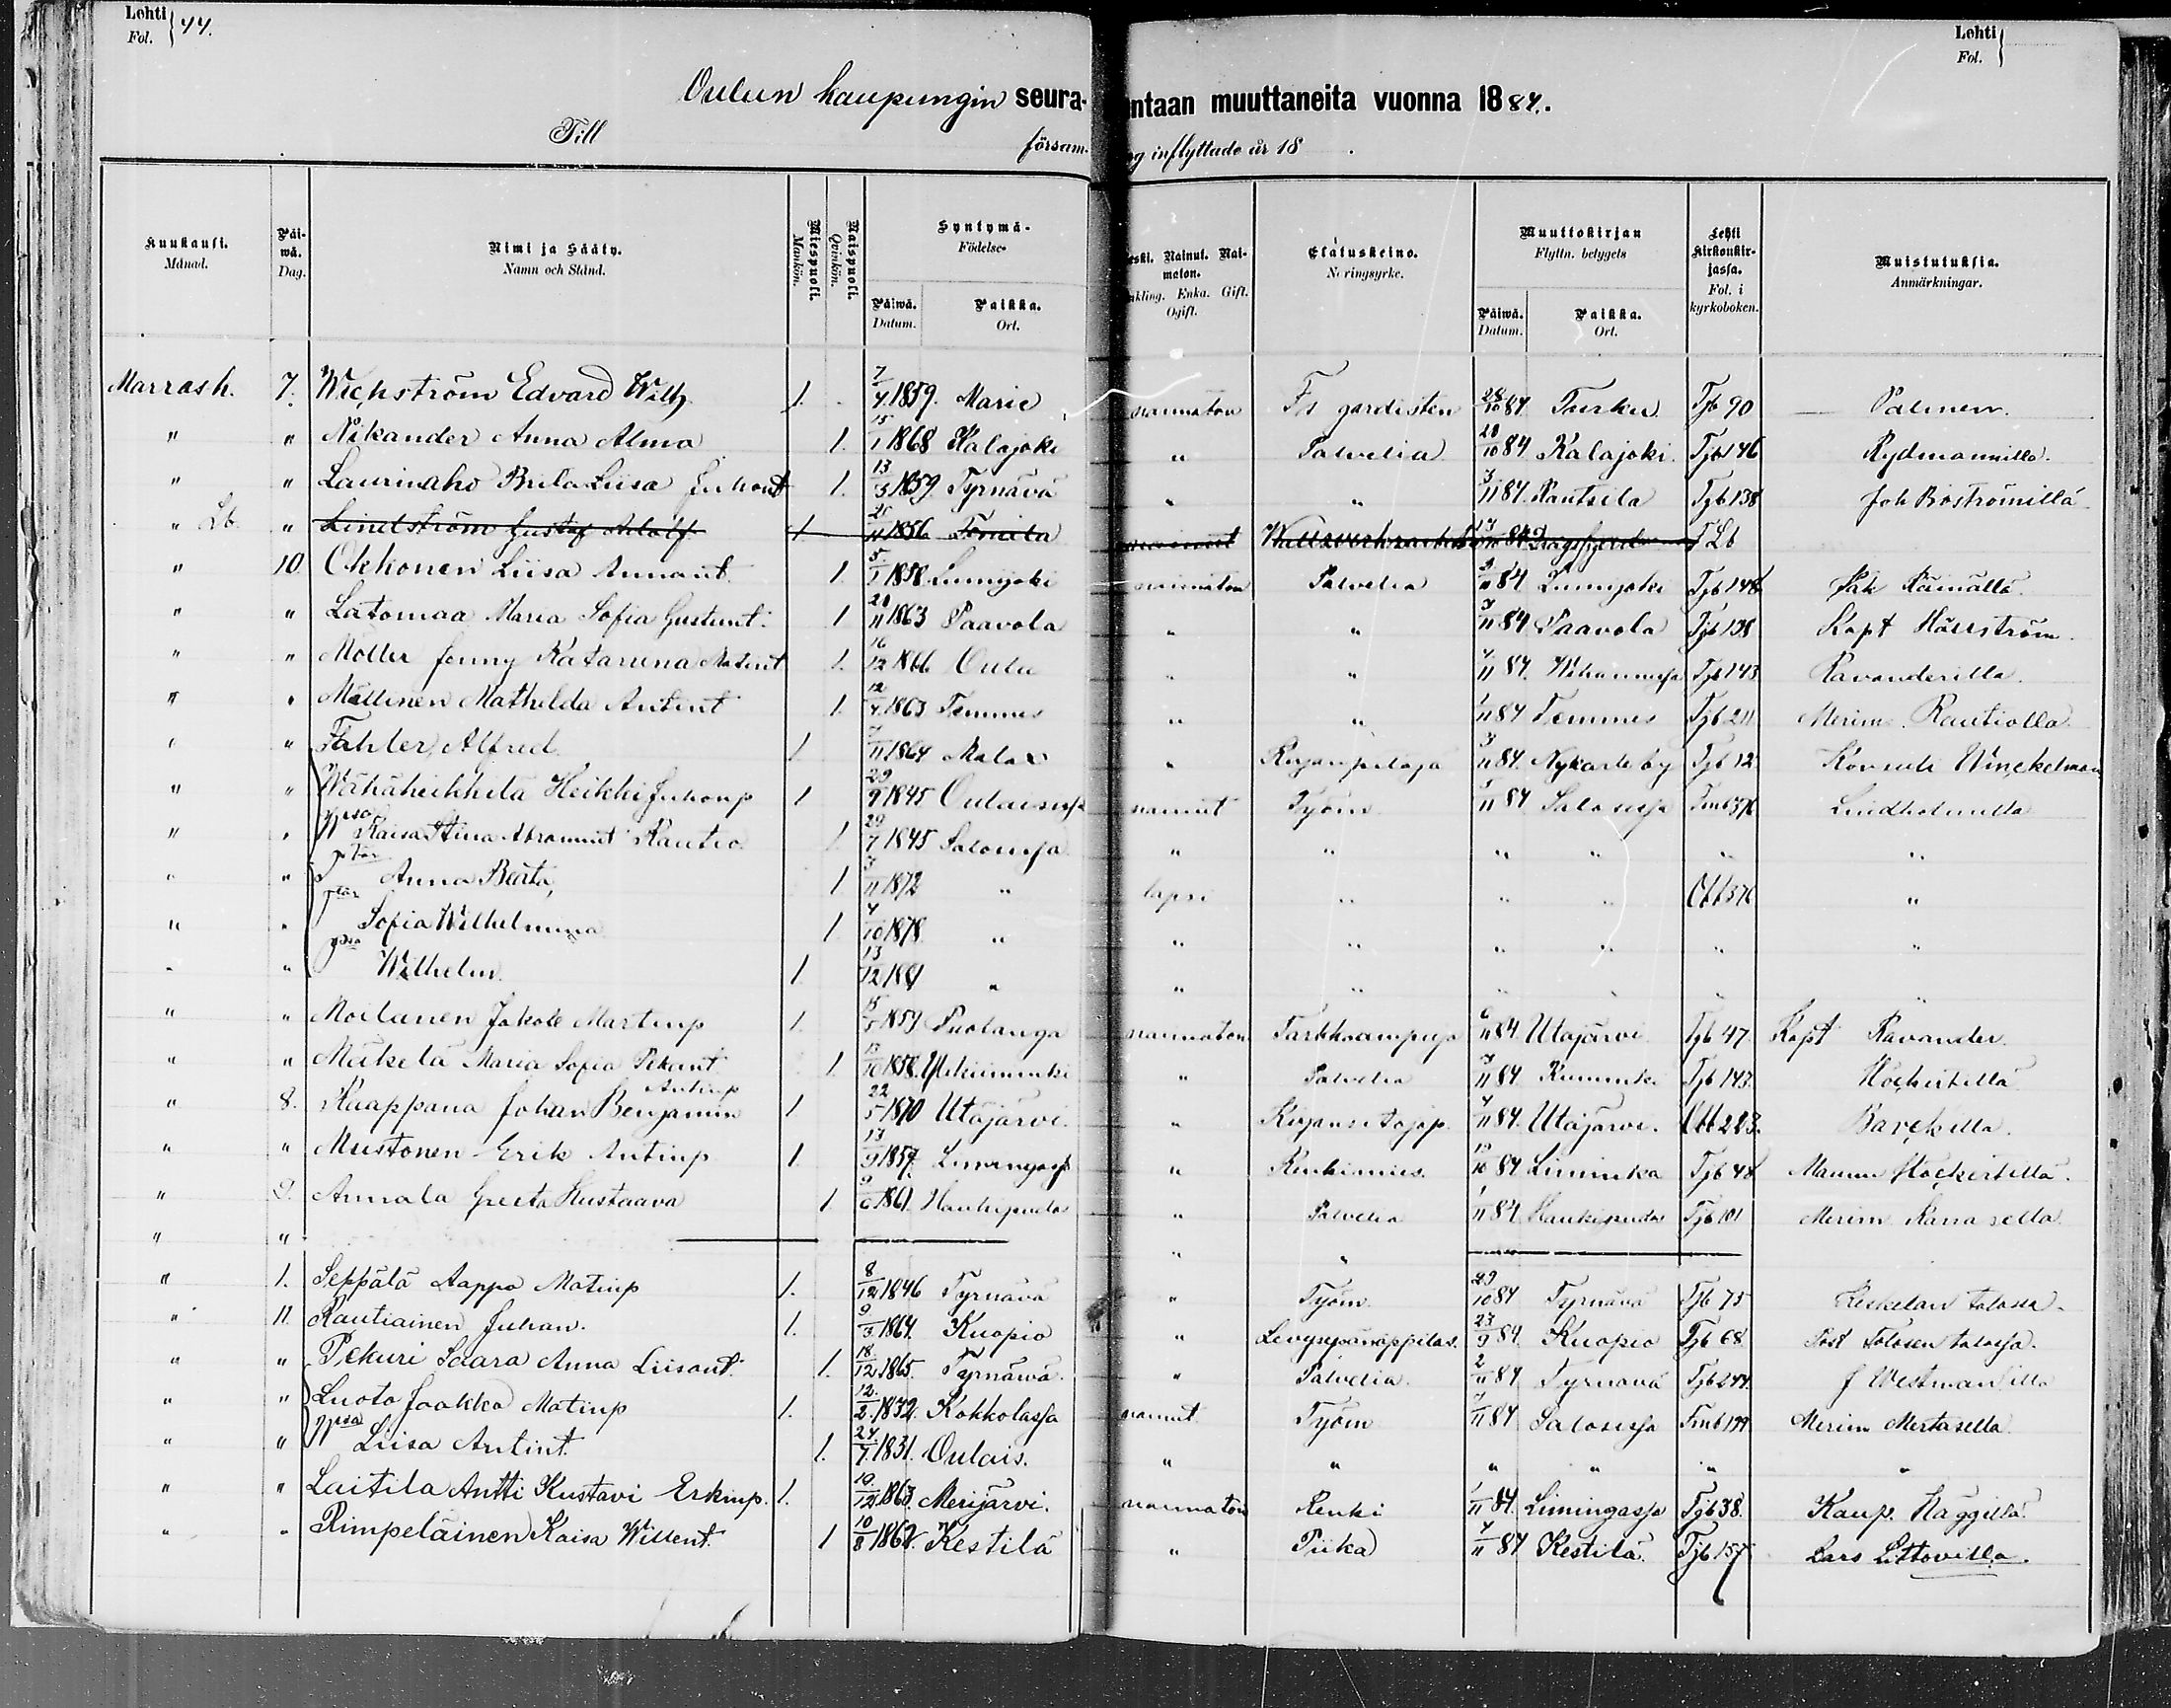 Lehti Fol. 44.
Lehti Fol.
Oulun kaupungin seurakuntaan muuttaneita vuonna 1884.
Till försam. inflyttade år 18 .
Kuukausi. Månad. Päiwä. Dag. Nimi ja Sääty. Namn och Stånd. Miespuoli. Mankön. Naispuoli. Qvinkön. Syntymä- Födelse- Päiwä. Datum. Paikka. Ort. Leski. Nainut. Naimaton. Enkling. Enka. Gift. Ogift. Elatuskeino. Näringsyrke. Muuttokirjan Flyttn. betygets Päiwä. Datum. Paikka. Ort. Lehti kirkonkirjassa. Fol. i kyrkoboken. Muistutuksia. Anmärkningar.
Marrask. 7. Wickström Edvard Wilh. 1. 7/4 1859. Marie naimaton Fs gardisten 28/10 84 Turku Tjb 90 Palmen.
" " Nikander Anna Alma 1. 15/1 1868 Kalajoki " Palvelia 28/10 84 Kalajoki. Tjb 146 Rydmanilla.
" " Laurinaho Brita Liisa Juhont 1. 13/3 1859 Tyrnävä " " 3/11 84. Rantsila Tjb 138 Joh Boströmillä
" Lb. " Lindström Gustaf Adolf 1 1856 84 T Lb
" 10. Okkonen Liisa Annant. 1. 5/1 1858 Lumijoki naimaton Palvelia 3/11 84 Lumijoki Tjb 148
" " Latomaa Maria Sofia Gustunt. 1 20/11 1863 Paavola " " 7/11 84 Paavola Tjb 138 Kapt
" " Möller Jenny Katariina Matint 1. 16/12 1866 Oulu " " 7/11 84. Tjb 143 Ravanderilla.
" " Mällinen Mathilda Antint 1. 12/4 1863 Temmes " " 1/11 84 Temmes Tjb 211 Merim. Rautiolla.
" " Fahler, Alfred. 1 7/11 1864 Malax " 3/11 84. Nykarleby Tjb 12 Winckelman
" " Wähäheikkilä Heikki Juhonp 1 29/9 1845 Oulaisissa nainut Työm. 5/11 84 Saloissa Tmb 376 Lindholmilla
" " Wmo Kaisa Stina Abramint Rautio. 1 29/7 1845 Saloissa " " " " " "
" " Anna Beata, 1 3/11 1872 " lapsi " " " Obb 376 "
" " Sofia Wilhelmina 1 4/10 1878 " " " " " " "
" " Wilhelm. 1. 13/12 1881 " " " " " " "
" " Moilanen Jakob Martinp 1. 15/5 1859 Puolanga naimaton Tarkkaampuja 6/11 84 Utajärvi Tjb 47. Kapt Ravander.
" " Mäkelä Maria Sofia Pekant 1. 13/10 1858. Ylikiiminki " Palvelia 7/11 84. Kiiminki Tjb 143. Höckertillä
" 8. Kaappana Johan Benjamin Antinp 1 22/5 1870 Utajärvi. " 4/11 84. Utajärvi. Obb 223. Barckilla.
" " Mustonen Erik Antinp 1. 13/9 1857. Limingassa " Renkimies. 13/10 84 Liminka Tjb 48 Höckertillä.
" 9. Annala Greeta Kustaava 1 9/6 1861. Haukipudas " Palvelia 1/11 84. Haukipudas Tjb 101 Merim
" " " "
" 1. Seppälä Aappo Matinp 1. 8/12 1846 Tyrnävä " Työm. 29/10 84 Tyrnävä Tjb 75 talossa.
" 11. Rautiainen Juhan. 1. 9/3 1864. Kuopio " Levyseppänoppilas. 23/9 84. Kuopio Tjb 68 talossa.
" " Pekuri Saara Anna Liisant. 1. 18/12 1865. Tyrnäwä. " Palvelia. 2/11 84 Tyrnävä Tjb 244. J Westmanilla
" " Luoto Jaakko Matinp 1. 12/2 1832. Kokkolassa nainut Työm 7/11 84 Saloissa Tmb 199. Merim Mertasella.
" " Wmo Liisa Antint. 1. 24/7 1831. Oulais. " " " " " "
" " Laitila Antti Kustavi Erkinp. 1. 19/12 1863. Merijärvi. naimaton Renki 1/11 84. Limingassa Tjb 38. Kaup. Häggillä.
" " Rimpeläinen Kaisa Willent. 1 10/8 1862. Kestilä " Piika 7/11 84 Kestilä. Tjb 157 Lars Littovilla.